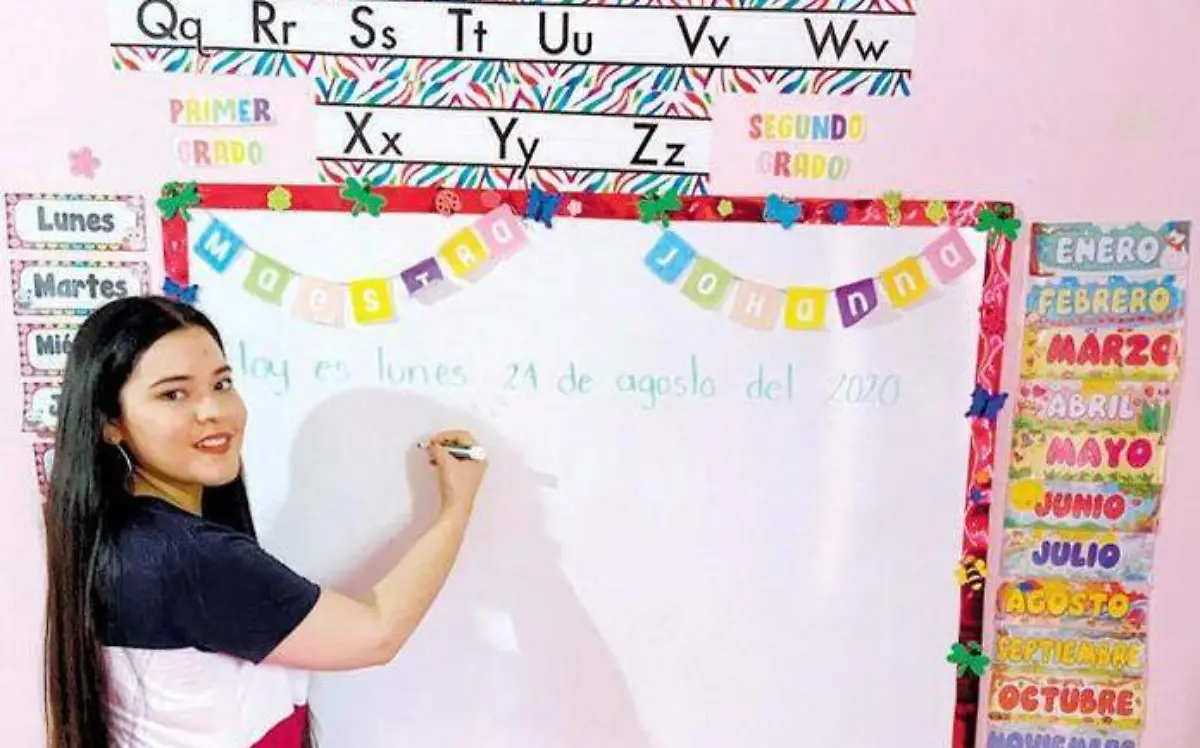 Qq Rr Ss Tt Uu Vv Ww
Xx Yy Zz
PRIMER
GRADO
SEGUNDO
GRADO
Maestra Johanna
Hoy es lunes 24 de agosto del 2020
Lunes
Martes
Mié
ENERO
FEBRERO
MARZO
ABRIL
MAYO
JUNIO
JULIO
AGOSTO
SEPTIEMBRE
OCTUBRE
NOVIEMBRE